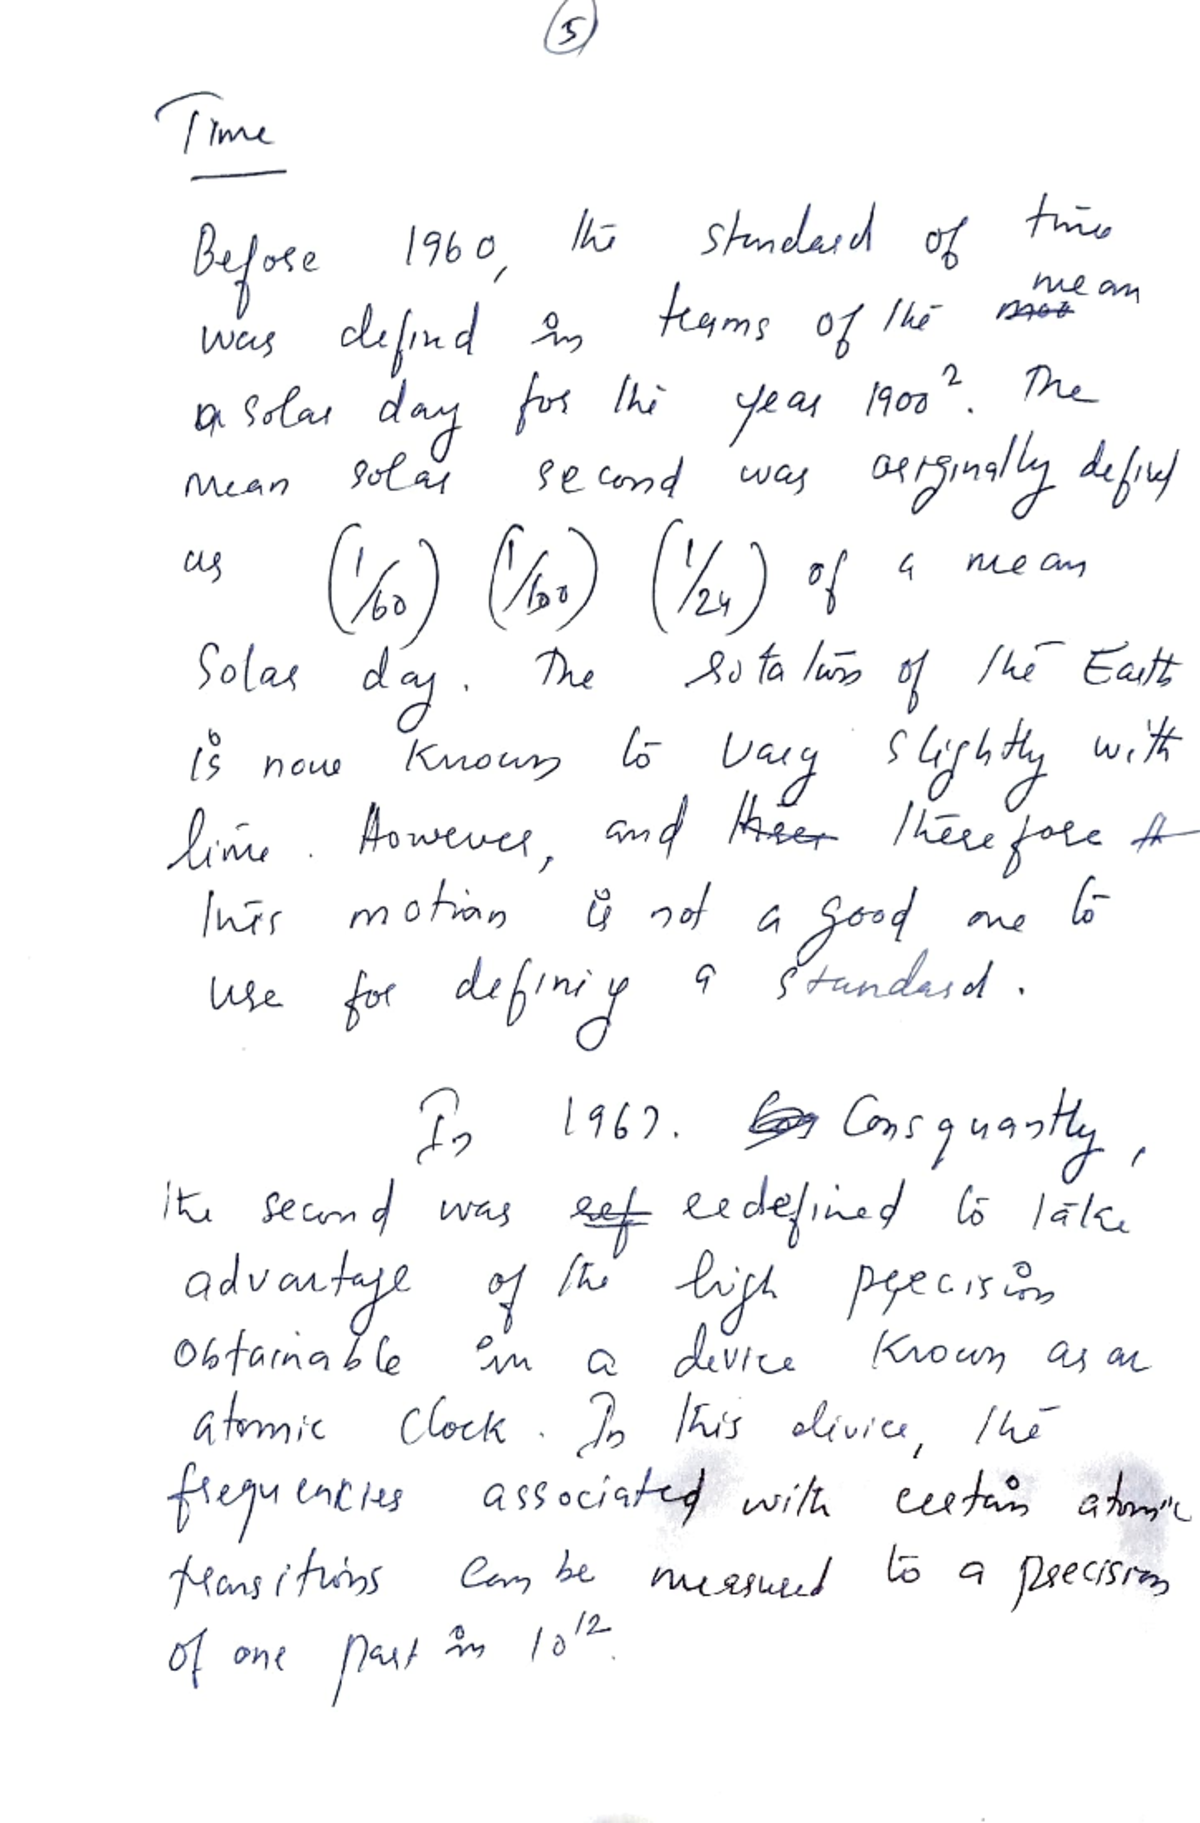 5
Time
Before 1960, the standard of time
was defind in terms of the mean
a solar day for the year 1900². The
mean solar second was orginally defined
as (1/60) (1/60) (1/24) of a mean
Solar day. The rotation of the Earth
is now known to vary slightly with
time. However, and therefore
this motion is not a good one to
use for defining a standard.
In 1967. Consquantly,
the second was redefined to take
advantage of the high precision
obtainable in a device known as an
atomic clock. In this divice, the
frequencies associated with certain atomic
transitions can be measured to a precision
of one part in 10¹².